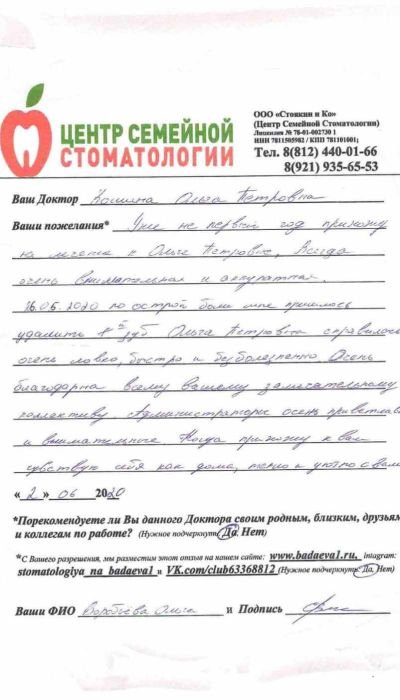 ЦЕНТР СЕМЕЙНОЙ
СТОМАТОЛОГИИ
ООО «Стоякин и Ко»
(Центр Семейной Стоматологии)
Лицензия № 78-01-002730 1
ИНН 7811505982 / КПП 781101001;
Тел. 8(812) 440-01-66
8(921) 935-65-53
Ваш Доктор Ольга Петровна
Ваши пожелания* Уже не первый год прихожу
на лечение к Ольге Петровне. Всегда
очень внимательная и аккуратная.
по острой боли мне пришлось
удалить зуб Ольга Петровна справилась
очень ловко, быстро и безболезненно. Очень
благодарна всему вашему замечательному
коллективу. Администраторы очень приветлив
и внимательные Когда прихожу к вам
чувствую себя как дома, тепло и уютно с вами
« 2 » 06 2020
*Порекомендуете ли Вы данного Доктора своим родным, близким, друзьям
и коллегам по работе? (Нужное подчеркнуть Да, Нет)
*С Вашего разрешения, мы разместим этот отзыв на нашем сайте: www.badaeva1.ru, intagram:
stomatologiya_na_badaeva1 и VK.com/club63368812 (Нужное подчеркнуть: Да, Нет)
Ваши ФИО Воробьева Ольга и Подпись